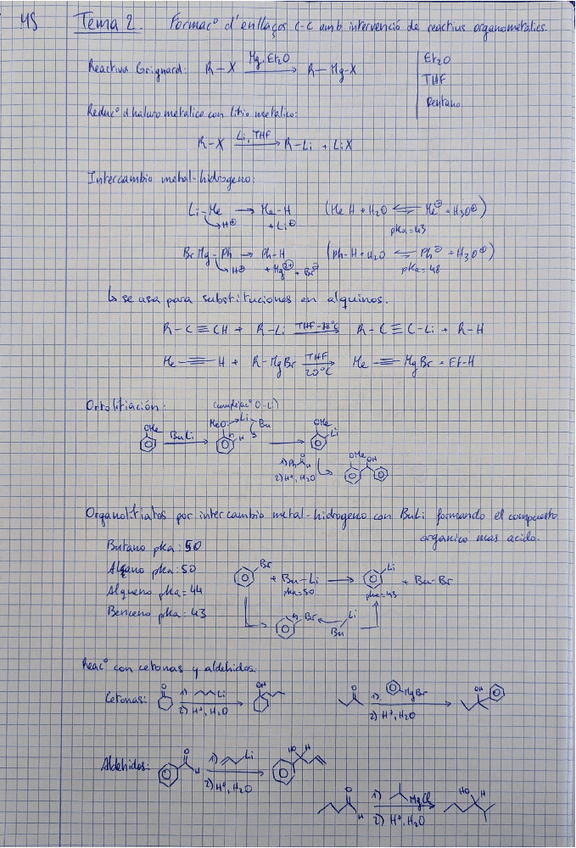 MS Tema 2. Formac° d'enllaços C-C amb intervenció de reactius organometàlics.
Reactivo Grignard: R-X Mg, Et2O R-Mg-X
Et2O
THF
Pentano
Reduc° d haluro metálico con litio metálico:
R-X Li, THF R-Li + LiX
Intercambio metal-hidrogeno:
Li-Me → Me-H (MeH + H2O ⇌ Me⊖ + H3O⊕)
H⊕ + Li⊕ pKa=43
BrMg-Ph → Ph-H (Ph-H + H2O ⇌ Ph⊖ + H3O⊕)
H⊕ + Mg2⊕ + Br⊖ pKa=48
↳ se usa para substituciones en alquinos.
R-C≡CH + R-Li THF -78°C R-C≡C-Li + R-H
Me-≡-H + R-MgBr THF 20°C Me-≡-MgBr + Et-H
Ortolitiación: O-Li)
OMe BuLi MeO Li Bu H OMe Li
1) Ph H
2) H+, H2O
OMe OH
Organolitiatos por intercambio metal-hidrogeno con BuLi formando el compuesto
organico mas acido.
Butano pKa: 50
Alqano pKa: 50
Alqueno pKa= 44
Benceno pKa: 43
Br + Bu-Li → Li + Bu-Br
pKa=50 pKa=43
Br Li
Bu
Reac° con cetonas y aldehidos:
Cetonas: O 1) Li 2) H+, H2O OH
O 1) MgBr 2) H+, H2O OH
Aldehidos: O H 1) Li 2) H+, H2O HO H
O H 1) MgCl 2) H+, H2O HO H